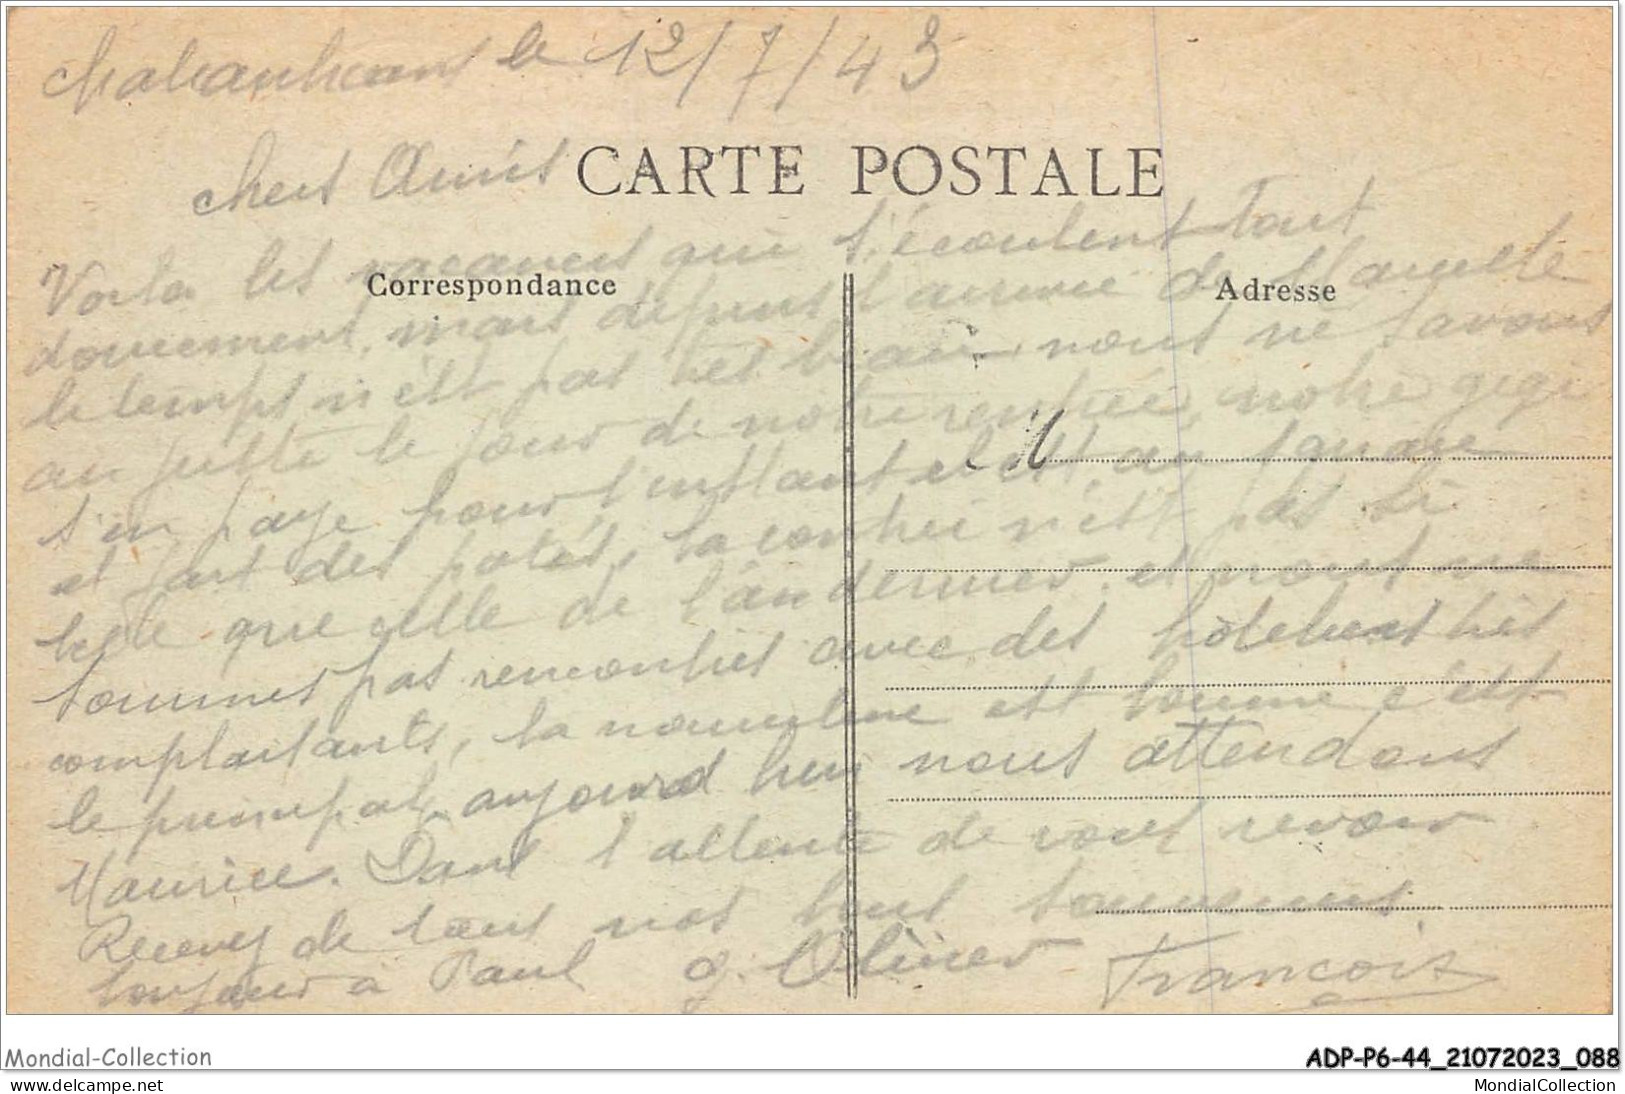 Chateaubriant le 12/7/43
CARTE POSTALE
chers Amis
Voila les vacances qui s'écoulent tout
Correspondance
Adresse
doucement, mais depuis l'arrivée de
le temps n'est pas très beau, nous ne savons
au juste le jour de notre rentrée, notre gigi
s'en paye pour l'instant el est au square
et fait des patés, la contrée n'est pas si
belle que celle de l'an dernier. et nous ne
sommes pas rencontrés avec des hôteliers très
complaisants, la nourriture est bonne c'est
le principal, aujourd hui nous attendons
Maurice. Dans l'attente de vous revoir
Recevez de tous nos bons souvenirs.
bonjour à Paul g. Olivier François
Mondial-Collection
ADP-P6-44_21072023_088
www.delcampe.net
MondialCollection